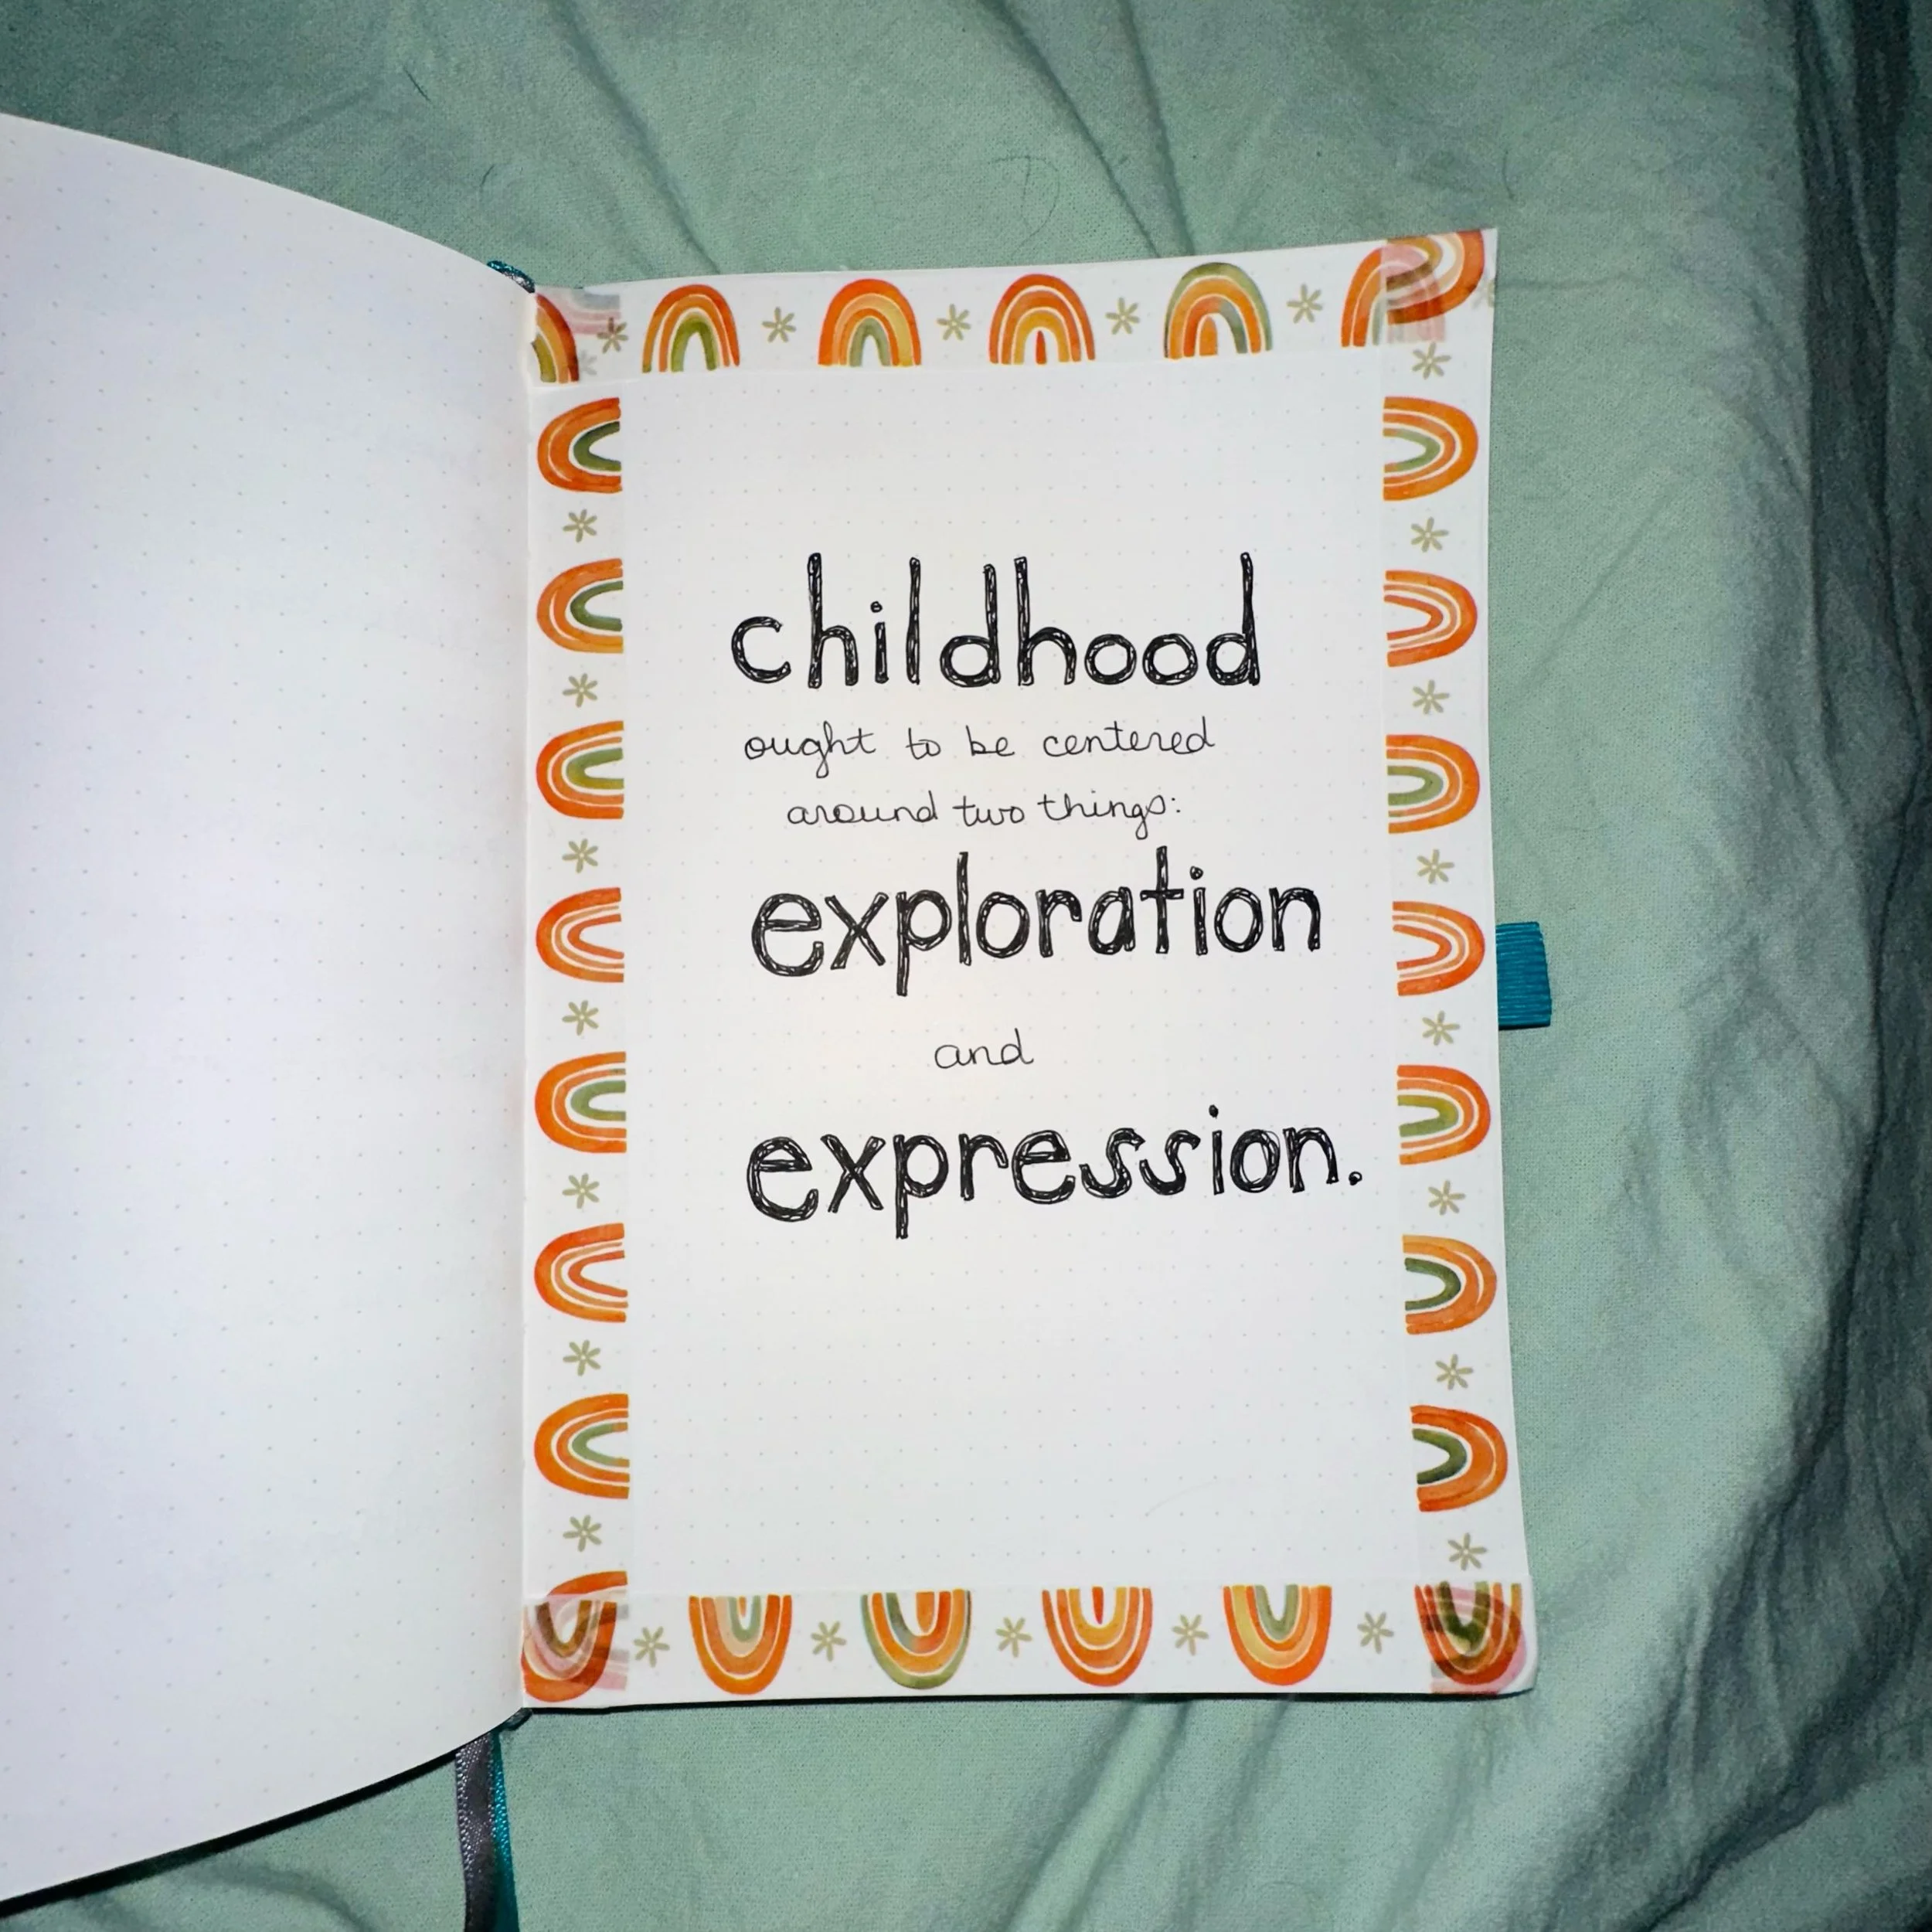 childhood
ought to be centered
around two things:
exploration
and
expression.